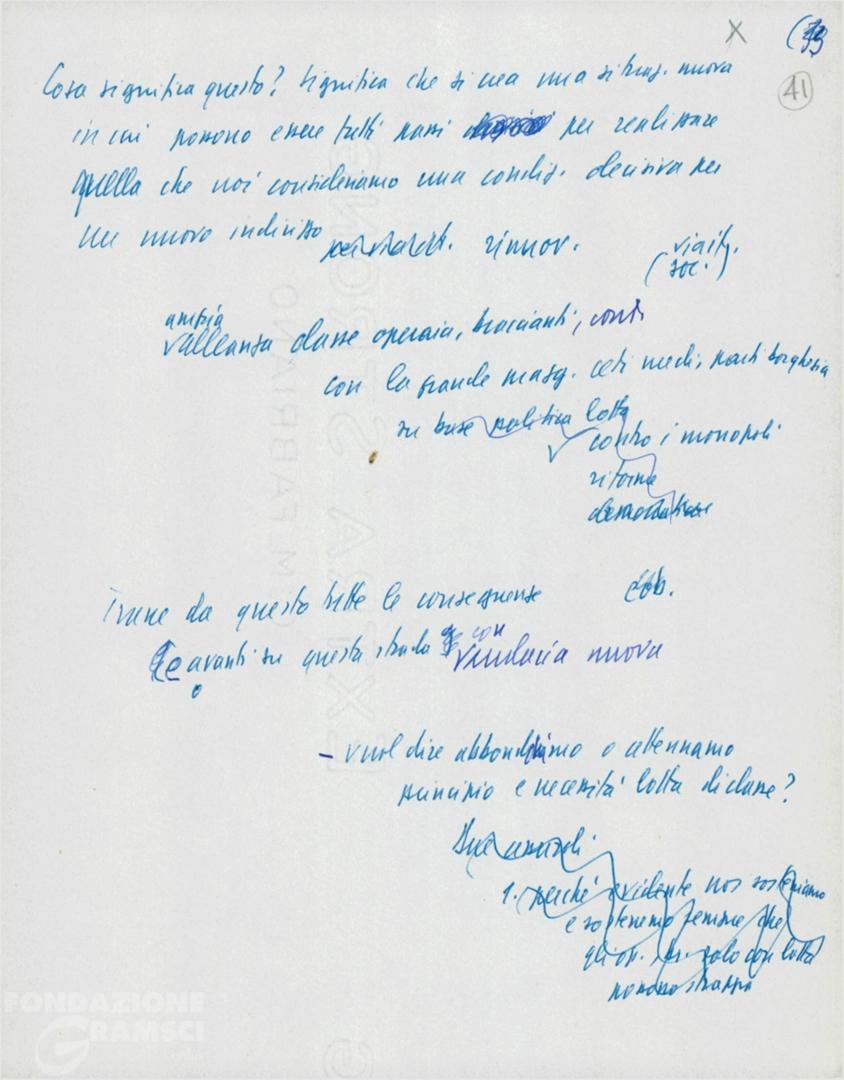 X (33
41
Cosa significa questo? Significa che si crea una situaz. nuova
in cui possono essere fatti passi per realizzare
quella che noi consideriamo una condiz. decisiva per
un nuovo indirizzo
rinnov.
(soc.)
amicizia
l'alleanza classe operaia, braccianti, contad.
con la grande massa ceti medi, parti borghesia
su base politica lotta
contro i monopoli
riforme
democratiche
Trarre da questo tutte le conseguenze
avanti su questa strada con
audacia nuova
- vuol dire abbandoniamo o attenuamo
principio e necessità lotta di classe?
1. perché evidente noi sosteniamo
e sosteremo sempre che
gli op. solo con lotta
possono strappa
EXTRA STRONG
C.M. FABRIANO
FONDAZIONE
GRAMSCI